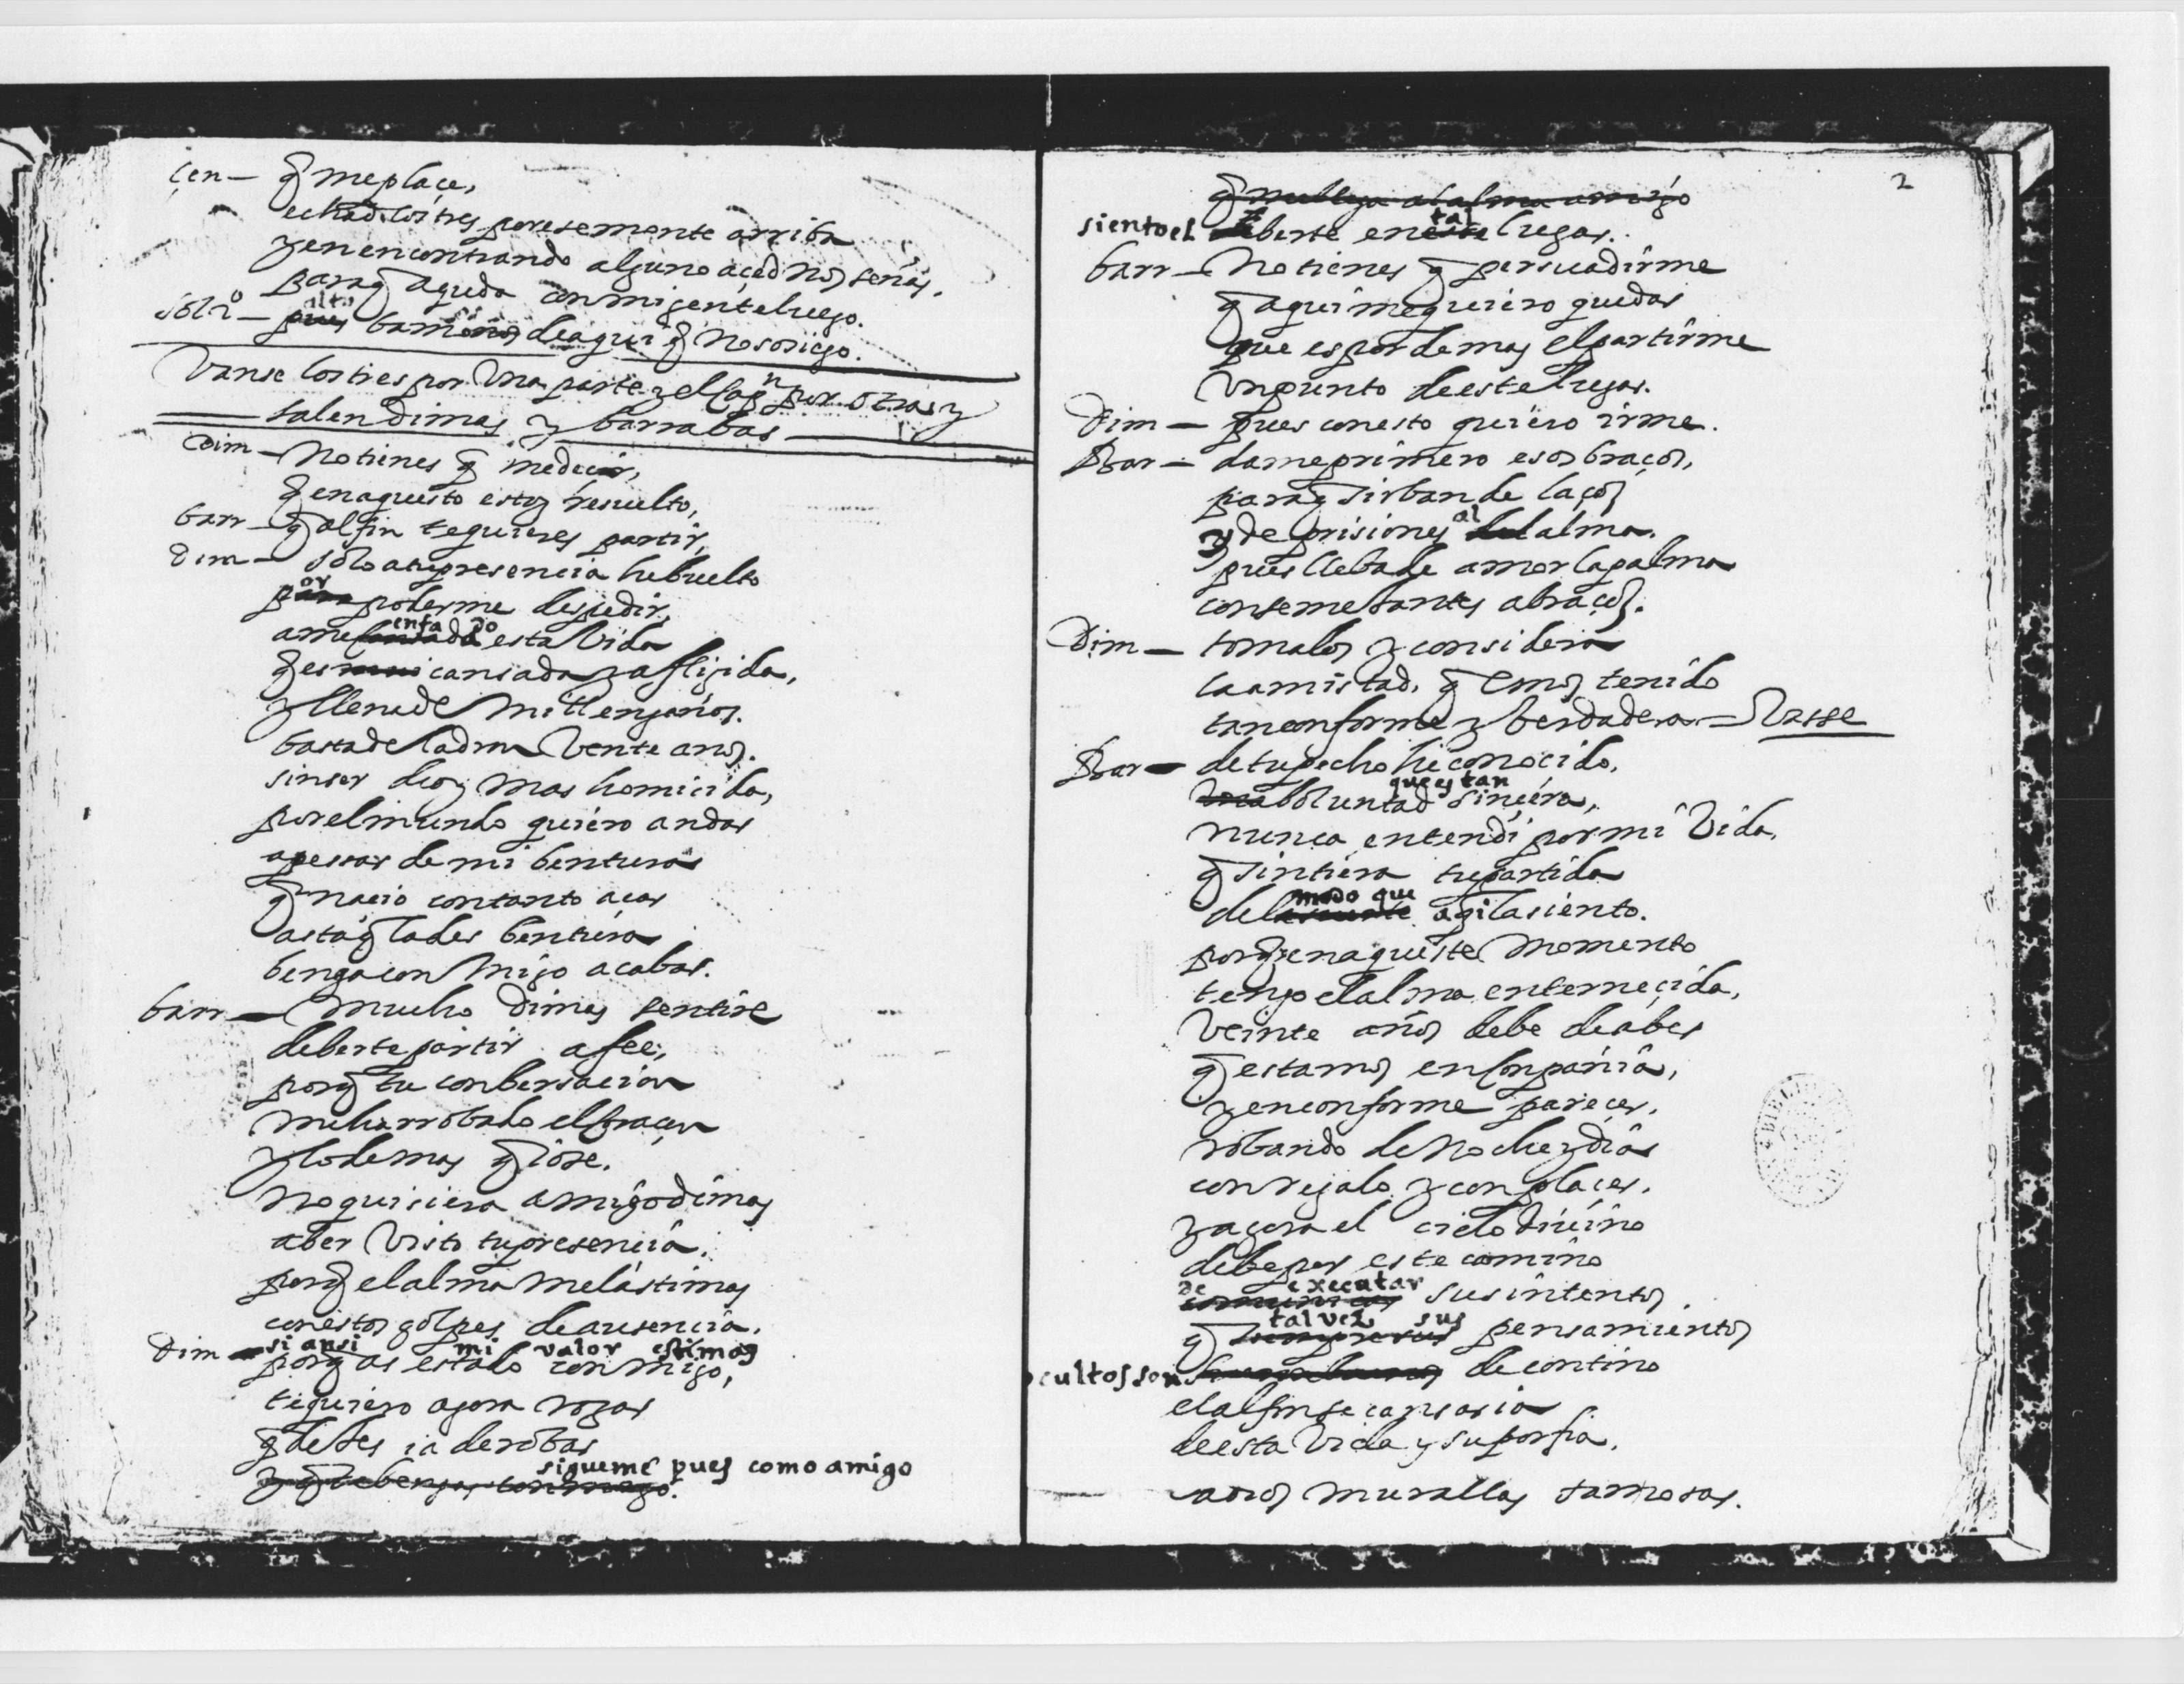 çen — q̃ me plaçe,
echad los tres por ese monte arriba
y en encontrando alguno açednos señas,
para q̃ aguda con mi jente luego.
sol 2º — alto bamonos de aqui q̃ no sosiego.
Vanse los tres por una parte y el capn por otra y
salen dimas y barrabas
Dim — No tienes q̃ me decir,
q̃ en aquesto estoy resuelto,
barr — q̃ al fin te quieres partir,
Dim — solo a tu presencia he buelto
por poderme despedir,
a me enfadado esta Vida
q̃ es mui cansada y aflijida,
y llena de mill engaños.
basta de ladron Vente años.
sin ser de oy mas homicida,
por el mundo quiero andar
apessar de mi bentura
q̃ nacio con tanto açar
asta q̃ la desbentura
benga conmigo acabar.
barr — Mucho Dimas sentire
de berte partir a fee,
porq̃ tu conbersacion
me ha rrobado el coraçon
y lo demas q̃ io se.
No quisiera amigo dimas
aber Visto tu presencia.
porq̃ el alma me lastimas
con estos golpes de ausencia.
si ansi mi valor estimas
Dim — porq̃ as estado conmigo,
te quiero agora rogar
q̃ dejes ia de robar
sigueme pues como amigo
y q̃ te bengas conmigo.
2
q̃ me llega al alma amigo
siento el berte en tal lugar.
barr — No tienes q̃ persuadirme
q̃ aqui me quiero quedar
que es por demas el partirme
Un punto de este lugar.
Dim — pues con esto quiero irme.
Bar — dame primero esos braços,
para q̃ sirban de laços
y de prisiones al alma.
pues lleba de amor la palma
con semejantes abraços.
Dim — tomalos y considera
la amistad, q̃ emos tenido
tan conforme y berdadera — Vasse
Bar — de tu pecho he conocido,
que es tan
boluntad sincera,
nunca entendi por mi Vida,
q̃ sintiera tu partida
del modo que aqi la siento.
porq̃ en aqueste momento
tengo el alma enterneçida,
Veinte años debe de aber
q̃ estamos en conpañia,
y en conforme pareçer,
robando de noche y dia
con regalo y con plaçer,
y agora el cielo diuino
debe por este camino
de executar sus intentos
q̃ tal vez sus pensamientos
ocultos son de contino
el al fin se cansaria
de esta Vida y su porfia,
adios murallas famosas.